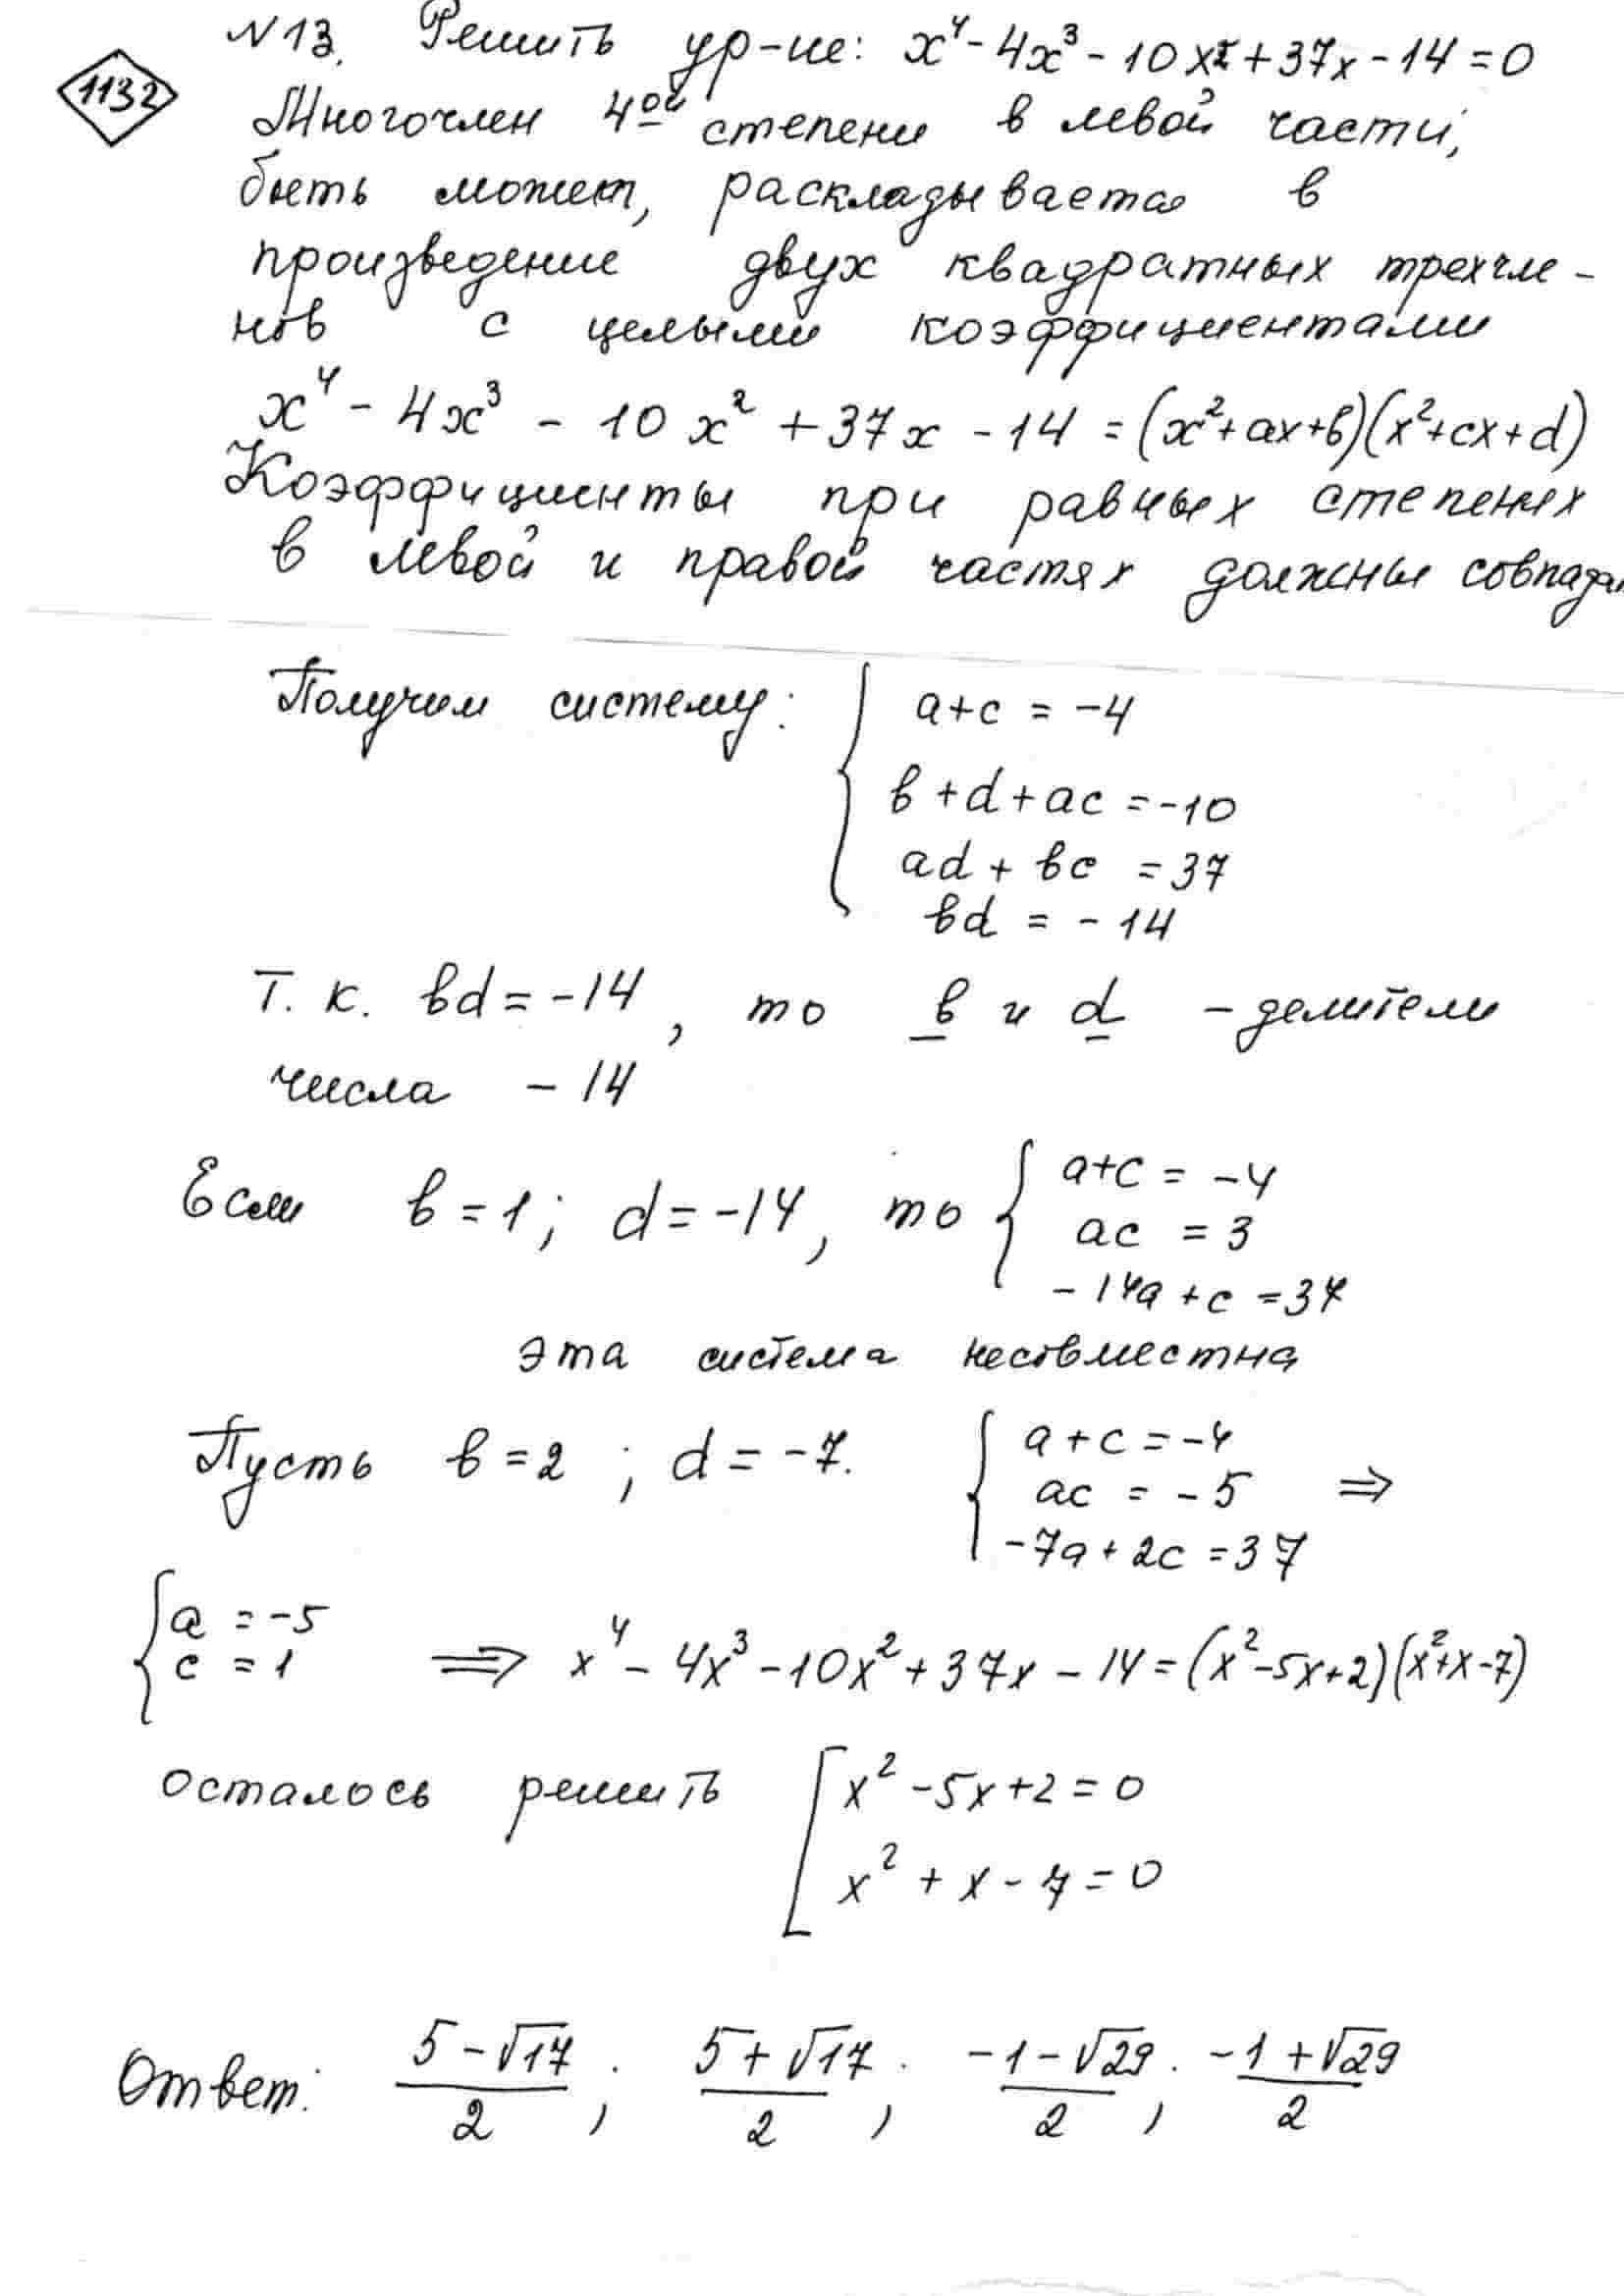 N13. Решить ур-ие: x⁴ - 4x³ - 10x² + 37x - 14 = 0
1132
Многочлен 4ой степени в левой части,
быть может, раскладывается в
произведение двух квадратных трехчле-
нов с целыми коэффициентами
x⁴ - 4x³ - 10x² + 37x - 14 = (x²+ax+b)(x²+cx+d)
Коэффициенты при равных степенях
в левой и правой частях должны совпадат
Получим систему: { a+c = -4
b+d+ac = -10
ad + bc = 37
bd = -14
Т. к. bd = -14, то b и d - делители
числа - 14
Если b = 1; d = -14, то { a+c = -4
ac = 3
-14a + c = 37
эта система несовместна
Пусть b = 2; d = -7. { a+c = -4
ac = -5 ⇒
-7a + 2c = 37
{ a = -5
c = 1 ⇒ x⁴ - 4x³ - 10x² + 37x - 14 = (x²-5x+2)(x²+x-7)
осталось решить [ x² - 5x + 2 = 0
x² + x - 7 = 0
Ответ: (5-√17)/2; (5+√17)/2; (-1-√29)/2; (-1+√29)/2